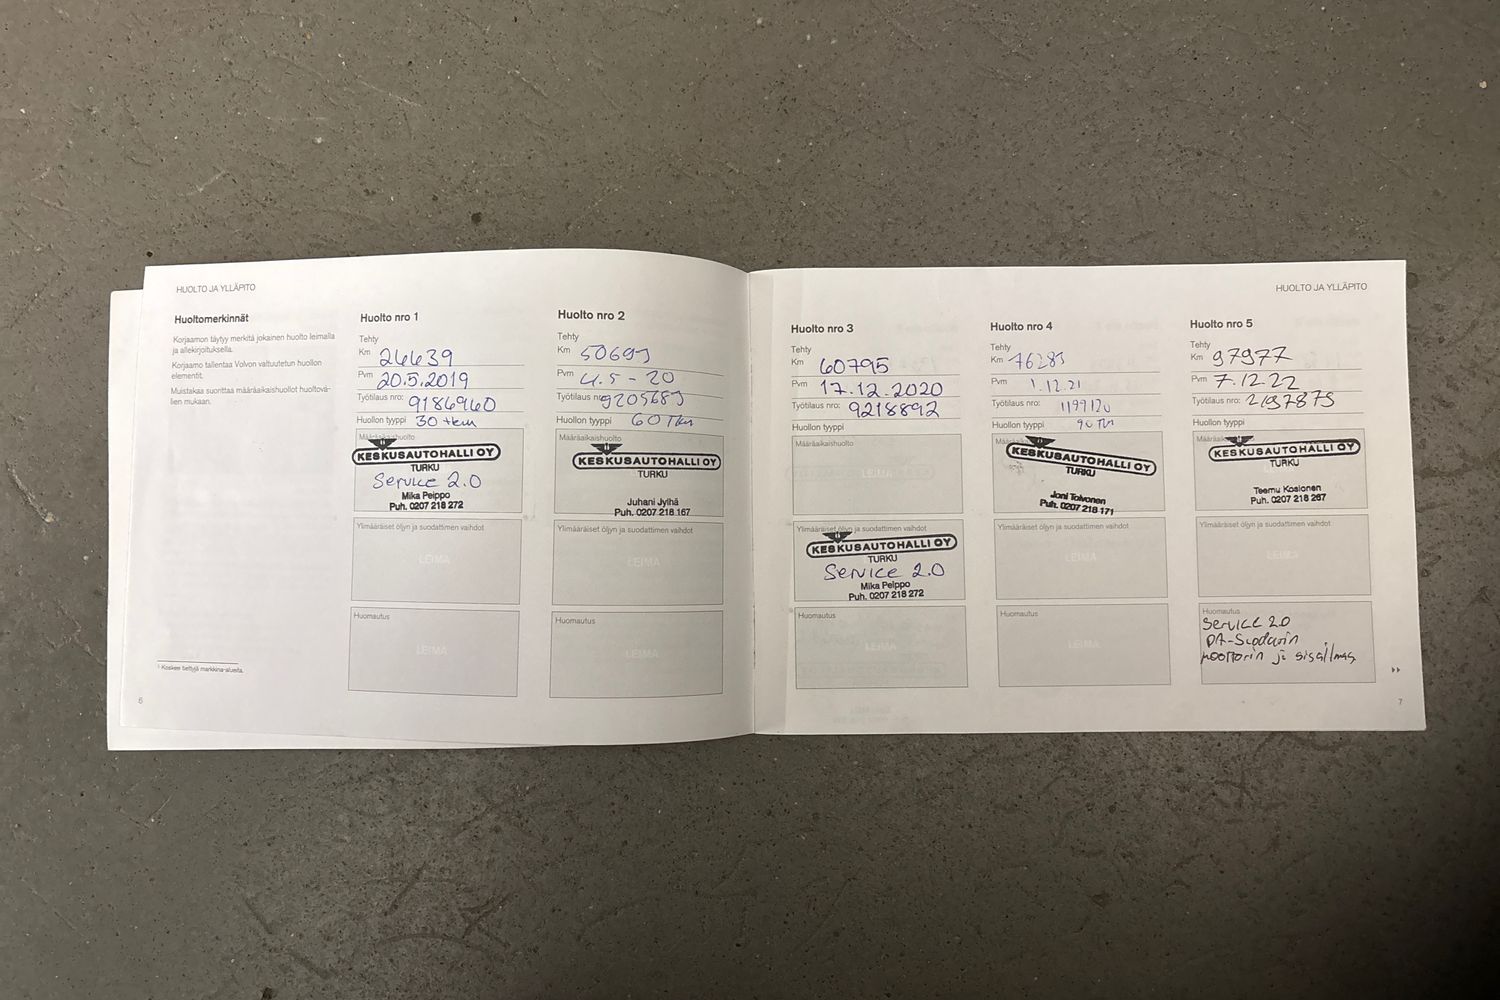 HUOLTO JA YLLÄPITO
Huoltomerkinnät
Korjaamon täytyy merkitä jokainen huolto leimalla
ja allekirjoituksella.
Korjaamo tallentaa Volvon valtuutetun huollon
elementit.
Muistakaa suorittaa määräaikaishuollot huoltovä-
lien mukaan.
¹ Koskee tiettyjä markkina-alueita.
6
Huolto nro 1
Tehty
Km 26639
Pvm 20.5.2019
Työtilaus nro: 9186960
Huollon tyyppi 30 tkm
Määräaikaishuolto
KESKUSAUTOHALLI OY
TURKU
Service 2.0
Mika Peippo
Puh. 0207 218 272
Ylimääräiset öljyn ja suodattimen vaihdot
LEIMA
Huomautus
LEIMA
Huolto nro 2
Tehty
Km 50693
Pvm 4.5-20
Työtilaus nro: 9205683
Huollon tyyppi 60 Tkm
Määräaikaishuolto
KESKUSAUTOHALLI OY
TURKU
Juhani Jylhä
Puh. 0207 218 167
Ylimääräiset öljyn ja suodattimen vaihdot
LEIMA
Huomautus
LEIMA
HUOLTO JA YLLÄPITO
Huolto nro 3
Tehty
Km 60795
Pvm 17.12.2020
Työtilaus nro: 9218892
Huollon tyyppi
Määräaikaishuolto
LEIMA
Ylimääräiset öljyn ja suodattimen vaihdot
KESKUSAUTOHALLI OY
TURKU
Service 2.0
Mika Peippo
Puh. 0207 218 272
Huomautus
LEIMA
Huolto nro 4
Tehty
Km 76283
Pvm 1.12.21
Työtilaus nro:
Huollon tyyppi 90 Tkm
KESKUSAUTOHALLI OY
TURKU
Joni Toivonen
Puh. 0207 218 171
Ylimääräiset öljyn ja suodattimen vaihdot
LEIMA
Huomautus
LEIMA
Huolto nro 5
Tehty
Km 97977
Pvm 7.12.22
Työtilaus nro: 2197875
Huollon tyyppi
KESKUSAUTOHALLI OY
TURKU
Teemu Kosionen
Puh. 0207 218 267
Ylimääräiset öljyn ja suodattimen vaihdot
LEIMA
Huomautus
Service 2.0
PA-Suodatin
moottorin ja sisäilmas
7